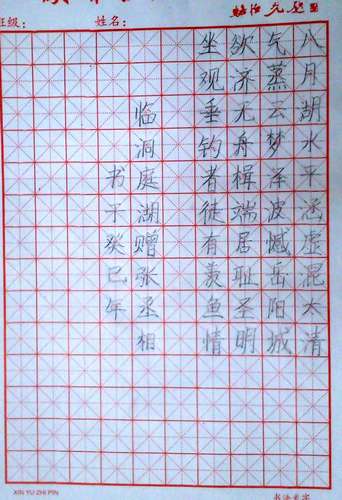 班级：
姓名：
八月胡水平涵虚混太清
气蒸云梦泽波憾岳阳城
欲济无舟楫端居耻圣明
坐观垂钓者徒有羡鱼情
临洞庭湖赠张丞相
书于癸巳年
XIN YU ZHI PIN